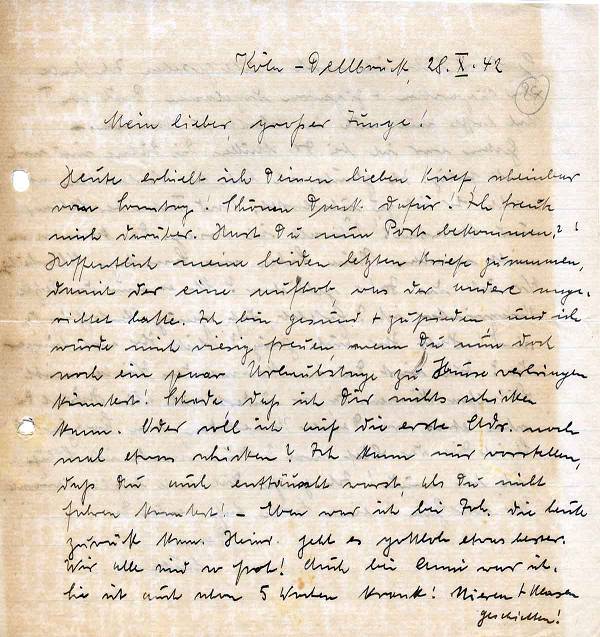 Köln - Dellbrück, 28. X. 42
Mein lieber, großer Junge!
Heute erhielt ich Deinen lieben Brief, scheinbar
vom Sonntag. Schönen Dank dafür. Ich freute
mich darüber. Hast Du nun Post bekommen?!
Hoffentlich meine beiden letzten Briefe zusammen,
damit der eine aufhob, was der andere ange-
richtet hatte. Ich bin gesund + zufrieden, und ich
würde mich riesig freuen, wenn Du nun doch
noch ein paar Urlaubstage zu Hause verbringen
könntest! Schade, daß ich Dir nichts schicken
kann. Oder soll ich auf die erste Adr. noch
mal etwas schicken? Ich kann mir vorstellen,
daß Du auch enttäuscht warst, als Du nicht
fahren konntest! - Eben war ich bei Joh. die heute
zurück kam. Heinr. geht es gottlob etwas besser.
Wir alle sind so froh! Auch bei Anni war ich.
Sie ist auch schon 5 Wochen krank! Nieren + Blasen
geschichten!